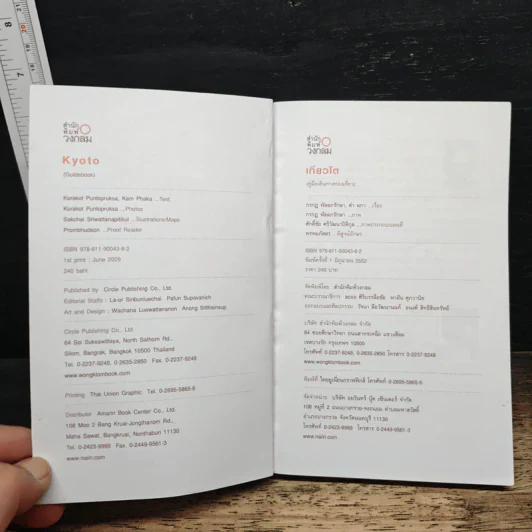 สำนัก
พิมพ์
วงกลม
Kyoto
(Guidebook)
Korakot Puntopruksa, Kam Phaka ...Text
Korakot Puntopruksa ...Photos
Sakchai Sriwattanapitikul ...Illustrations/Maps
Prombhudson ...Proof Reader
ISBN 978-611-90043-6-2
1st print : June 2009
240 baht
Published by Circle Publishing Co., Ltd.
Editorial Staffs : La-or Siribunluechai Pafun Supavanich
Art and Design : Wachana Luewattananon Anong Sitthisinsup
Circle Publishing Co., Ltd.
64 Soi Sukasawittaya, North Sathorn Rd.,
Silom, Bangrak, Bangkok 10500 Thailand
Tel. 0-2237-9248, 0-2635-2950 Fax. 0-2237-9248
www.wongklombook.com
Printing Thai Union Graphic Tel. 0-2695-5865-6
Distributor Amarin Book Center Co., Ltd.
108 Moo 2 Bang Kruai-Jongthanam Rd.,
Maha Sawat, Bangkruai, Nonthaburi 11130
Tel. 0-2423-9999 Fax. 0-2449-9561-3
www.naiin.com
สำนัก
พิมพ์
วงกลม
เกียวโต
กรกฎ พัลลภรักษา, คำ ผกา ...เรื่อง
กรกฎ พัลลภรักษา ...ภาพ
ISBN 978-611-90043-6-2
พิมพ์ครั้งที่ 1 มิถุนายน 2552
ราคา 240 บาท
จัดพิมพ์โดย สำนักพิมพ์วงกลม
บริษัท สำนักพิมพ์วงกลม จำกัด
64 ซอยศึกษาวิทยา ถนนสาทรเหนือ แขวงสีลม
เขตบางรัก กรุงเทพฯ 10500
โทรศัพท์ 0-2237-9248, 0-2635-2950 โทรสาร 0-2237-9248
www.wongklombook.com
พิมพ์ที่ ไทยยูเนี่ยนกราฟฟิกส์ โทรศัพท์ 0-2695-5865-6
จัดจำหน่าย บริษัท อมรินทร์ บุ๊ค เซ็นเตอร์ จำกัด
108 หมู่ที่ 2 ถนนบางกรวย-จงถนอม ตำบลมหาสวัสดิ์
อำเภอบางกรวย จังหวัดนนทบุรี 11130
โทรศัพท์ 0-2423-9999 โทรสาร 0-2449-9561-3
www.naiin.com